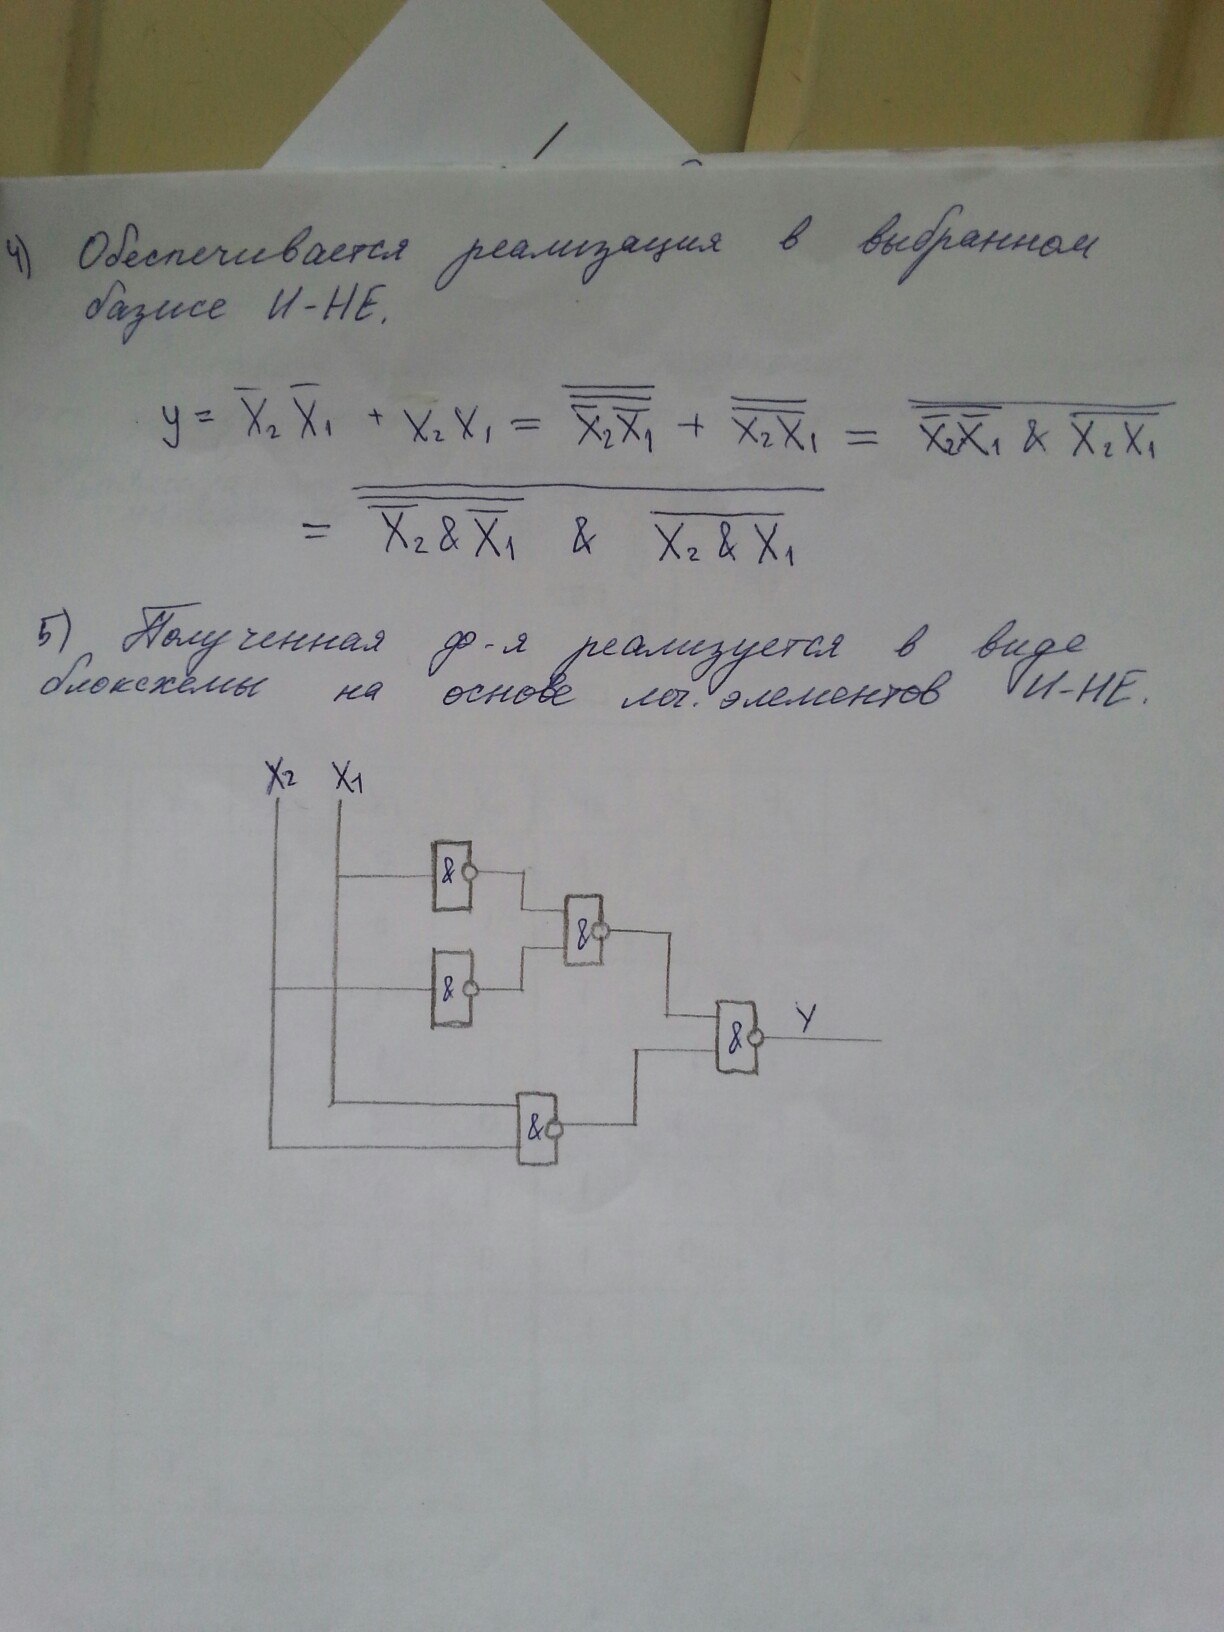 4) Обеспечивается реализация в выбранном
базисе И-НЕ.
y = X̅₂ X̅₁ + X₂ X₁ = X̿̅₂X̿̅₁ + X̿₂X̿₁ = X̅₂X̅₁ & X₂X₁
= X̅₂ & X̅₁ & X₂ & X₁
5) Полученная ф-я реализуется в виде
блоксхемы на основе лог. элементов И-НЕ.
X₂ X₁
&
&
&
&
Y
&